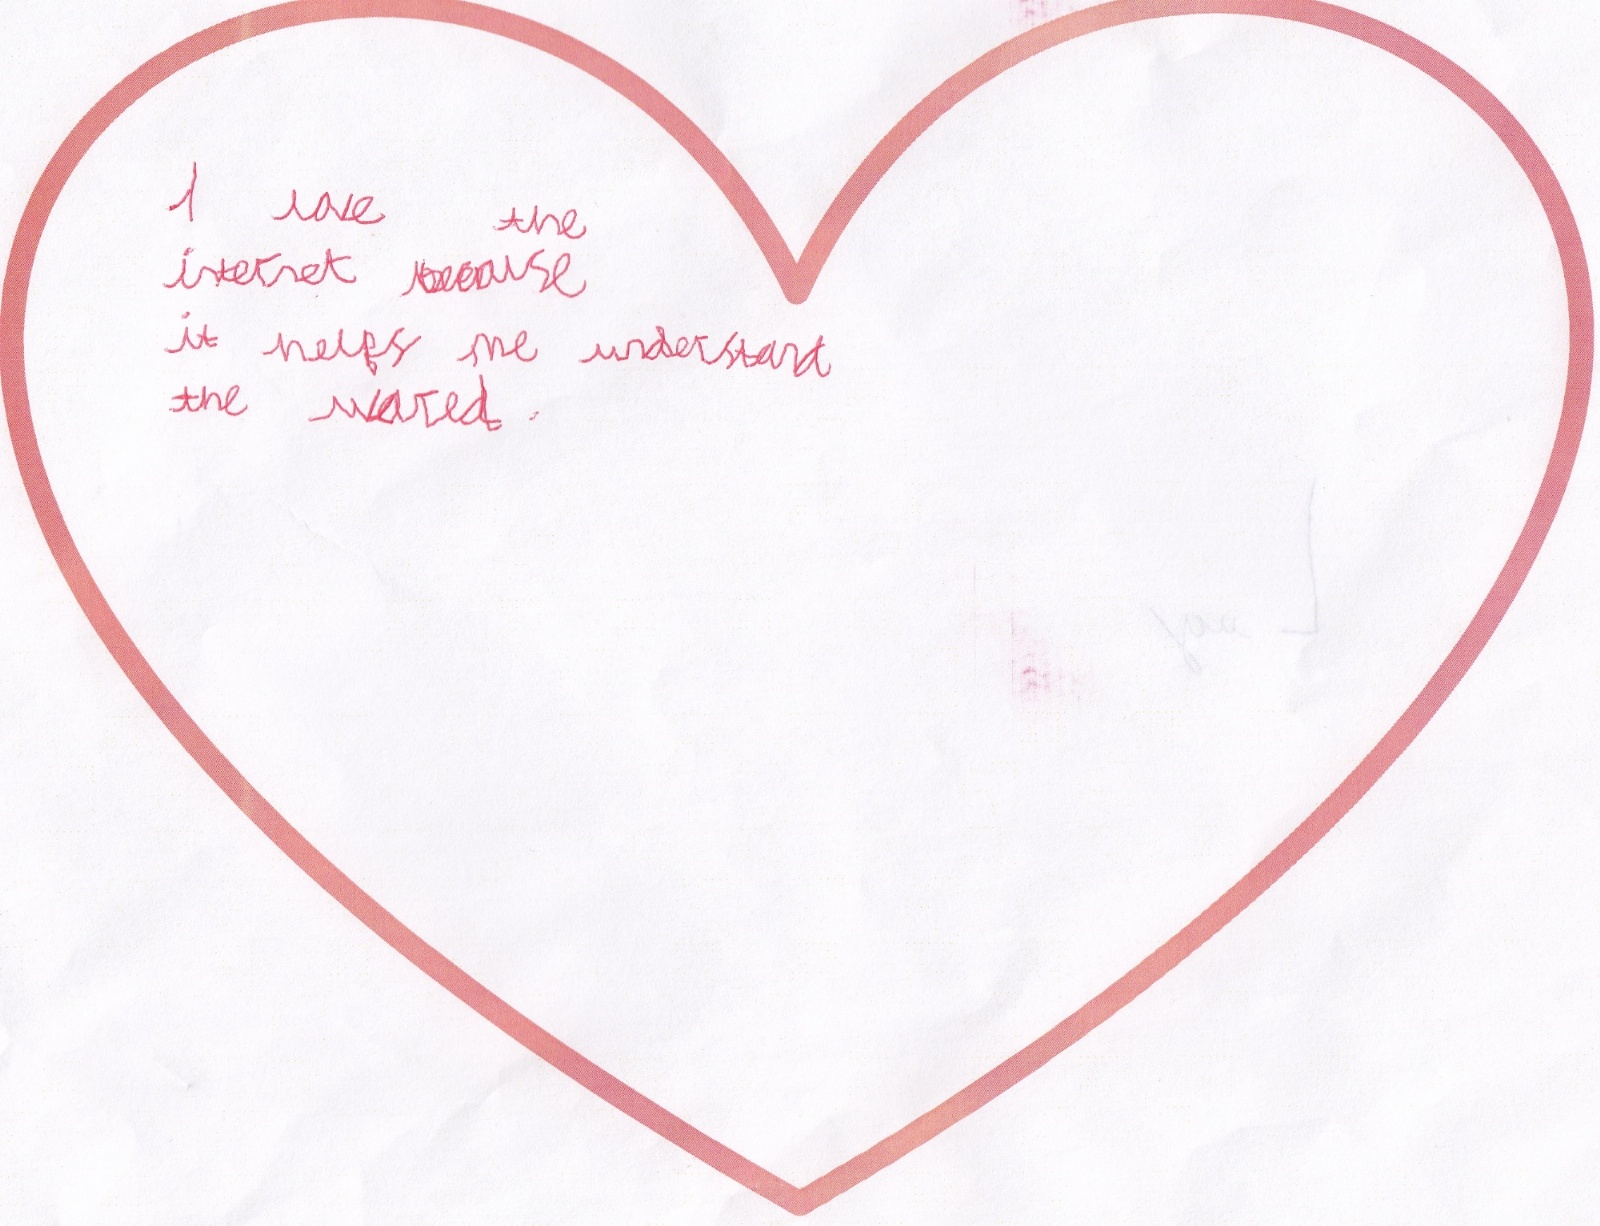 I love the
internet because
it helps me understand
the world .